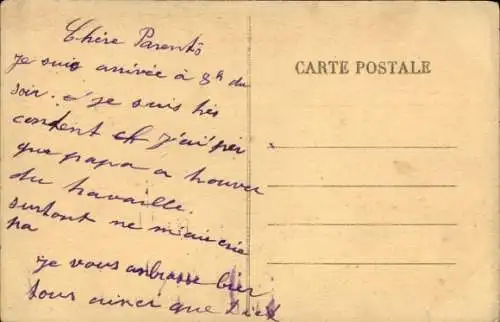 Chère Parentô
je suis arrivée à 8h du
soir. e je suis très
content et j'ai
que papa a trouver
du travaille.
surtout ne
pa
je vous anbrasse bien
tous ainci que
CARTE POSTALE